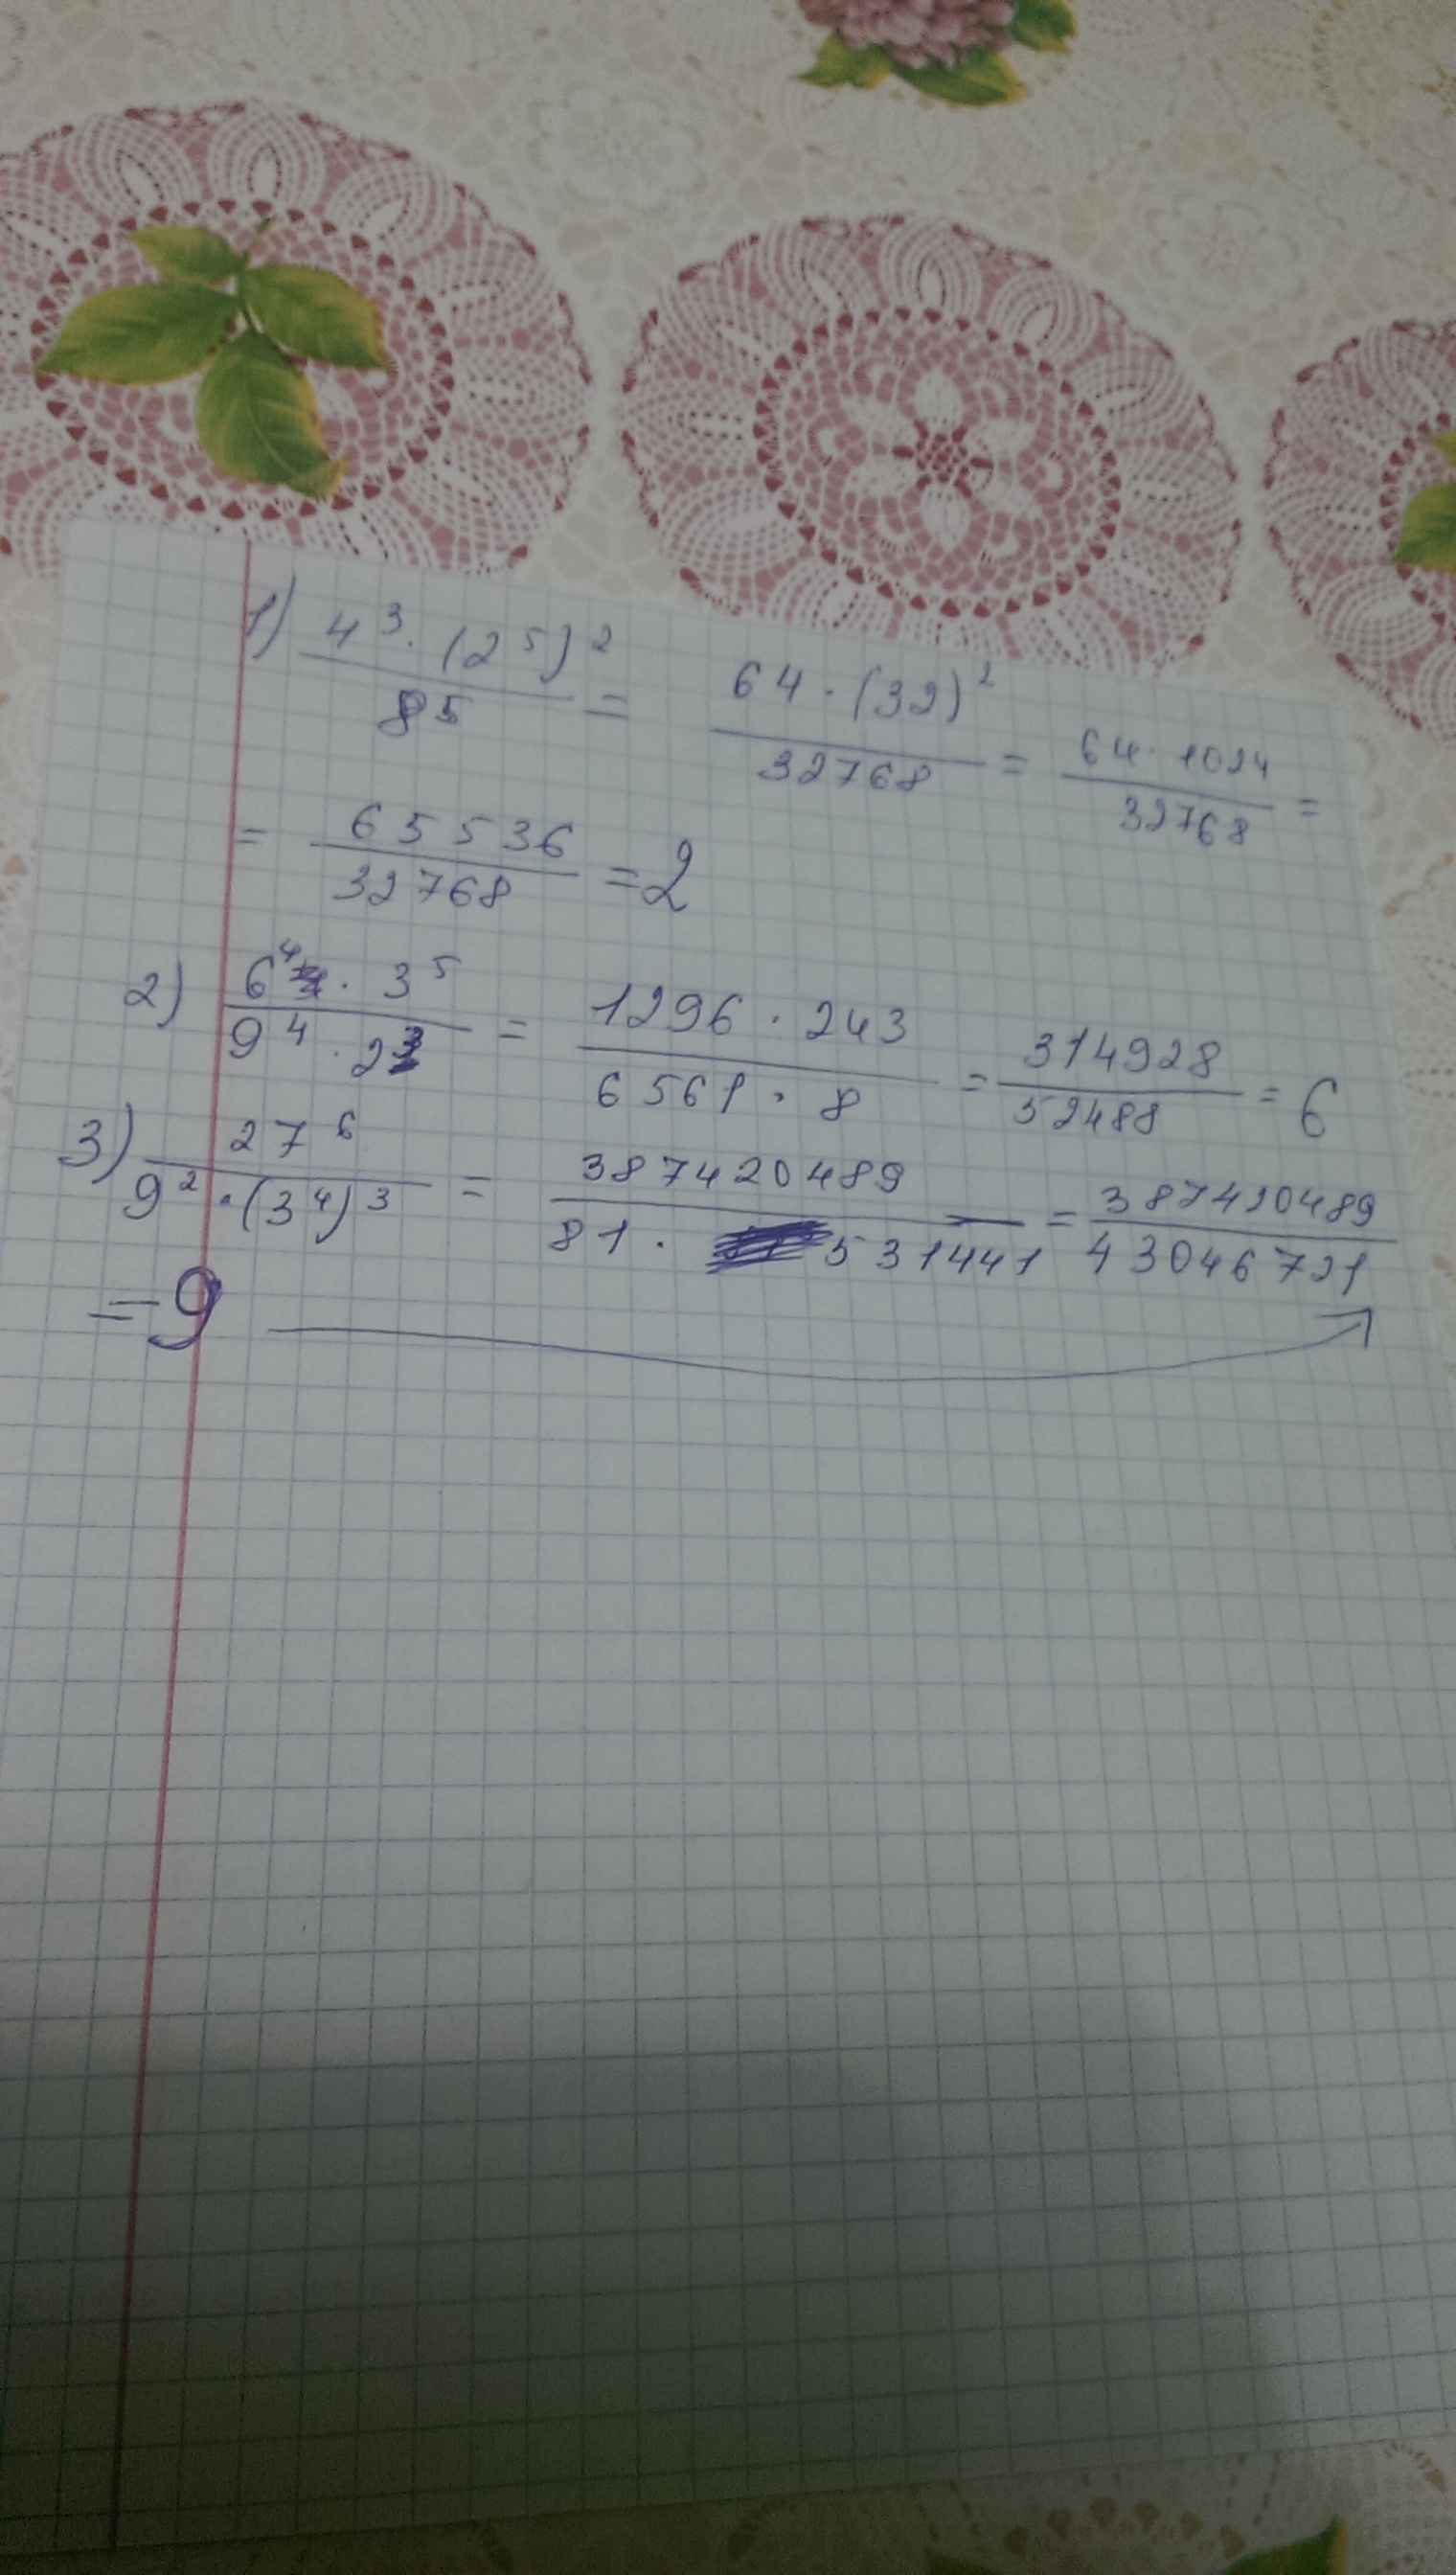 1) 4³ · (2⁵)² / 8⁵ = 64 · (32)² / 32768 = 64 · 1024 / 32768 =
= 65536 / 32768 = 2
2) 6⁴ · 3⁵ / 9⁴ · 2³ = 1296 · 243 / 6561 · 8 = 314928 / 52488 = 6
3) 27⁶ / 9² · (3⁴)³ = 387420489 / 81 · 531441 = 387420489 / 43046721
= 9